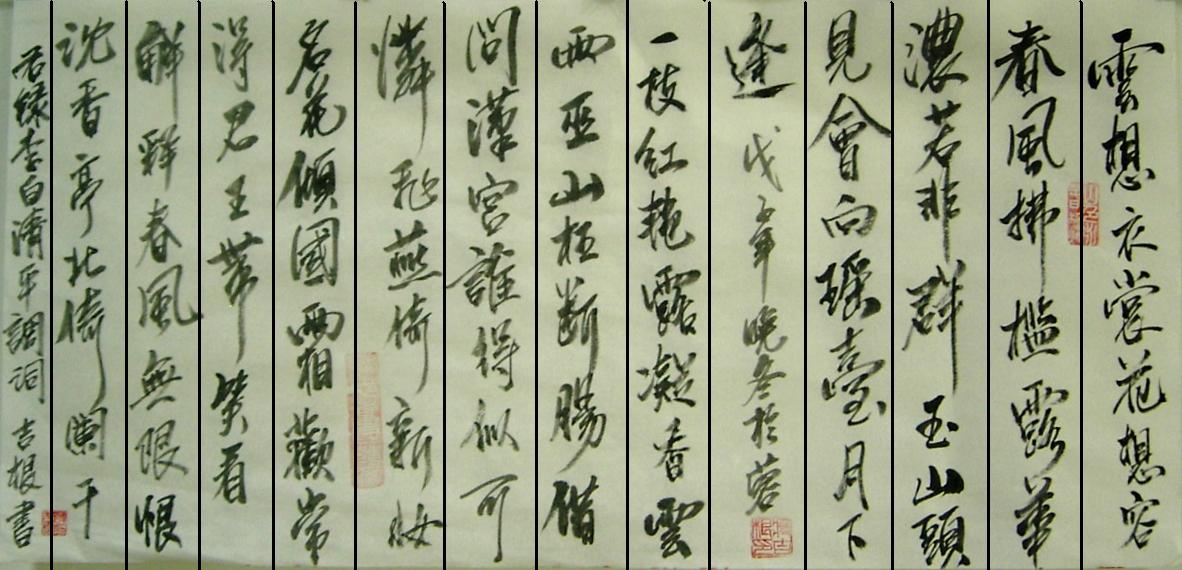 雲想衣裳花想容
春風拂檻露華
濃若非群玉山頭
見會向瑤臺月下
逢 戊子年晚冬於蓉
一枝紅艷露凝香雲
雨巫山枉斷腸借
問漢宮誰得似可
憐飛燕倚新妝
名花傾國兩相歡常
得君王帶笑看
解釋春風無限恨
沈香亭北倚闌干
右録李白清平調詞 吉根書